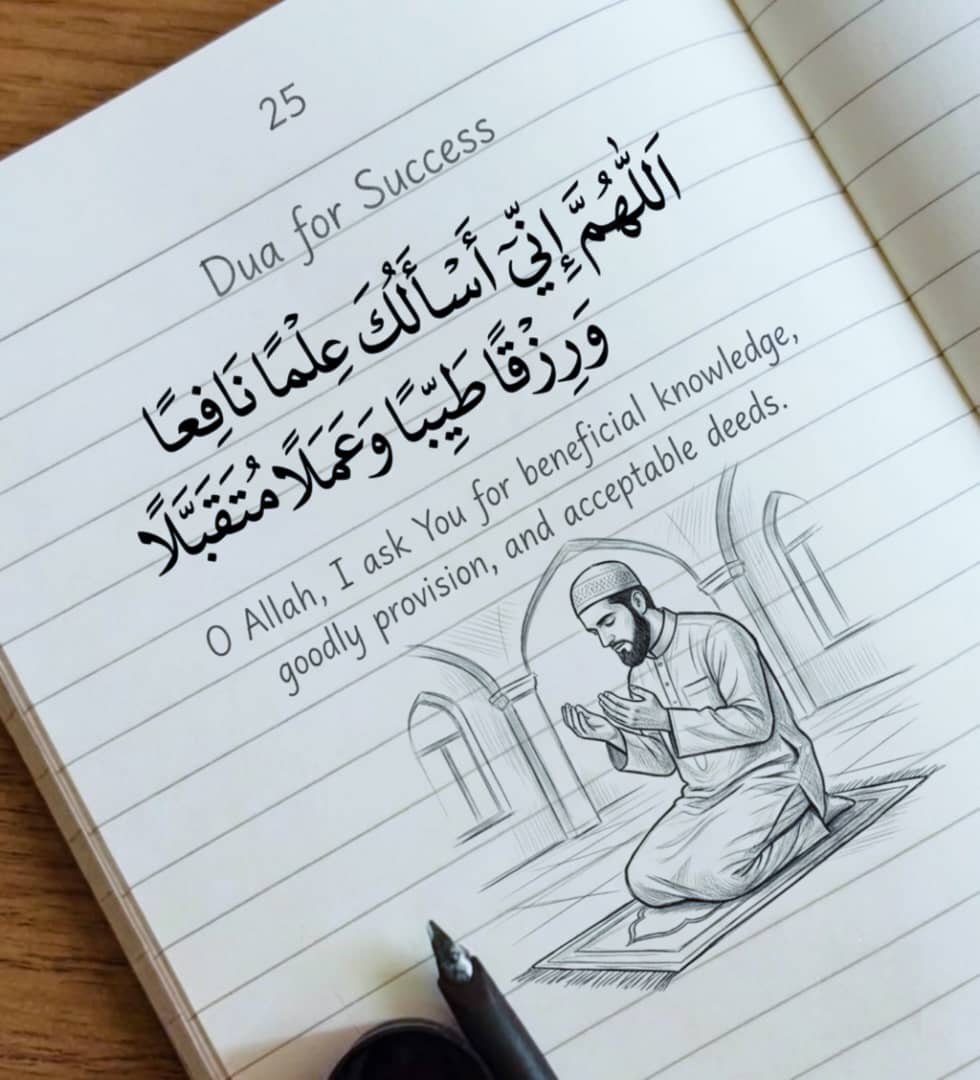 25
Dua for Success
اَللّٰهُمَّ إِنِّيٓ أَسْأَلُكَ عِلْمًا نَافِعًا
وَرِزْقًا طَيِّبًا وَعَمَلًا مُتَقَبَّلًا
O Allah, I ask You for beneficial knowledge,
goodly provision, and acceptable deeds.